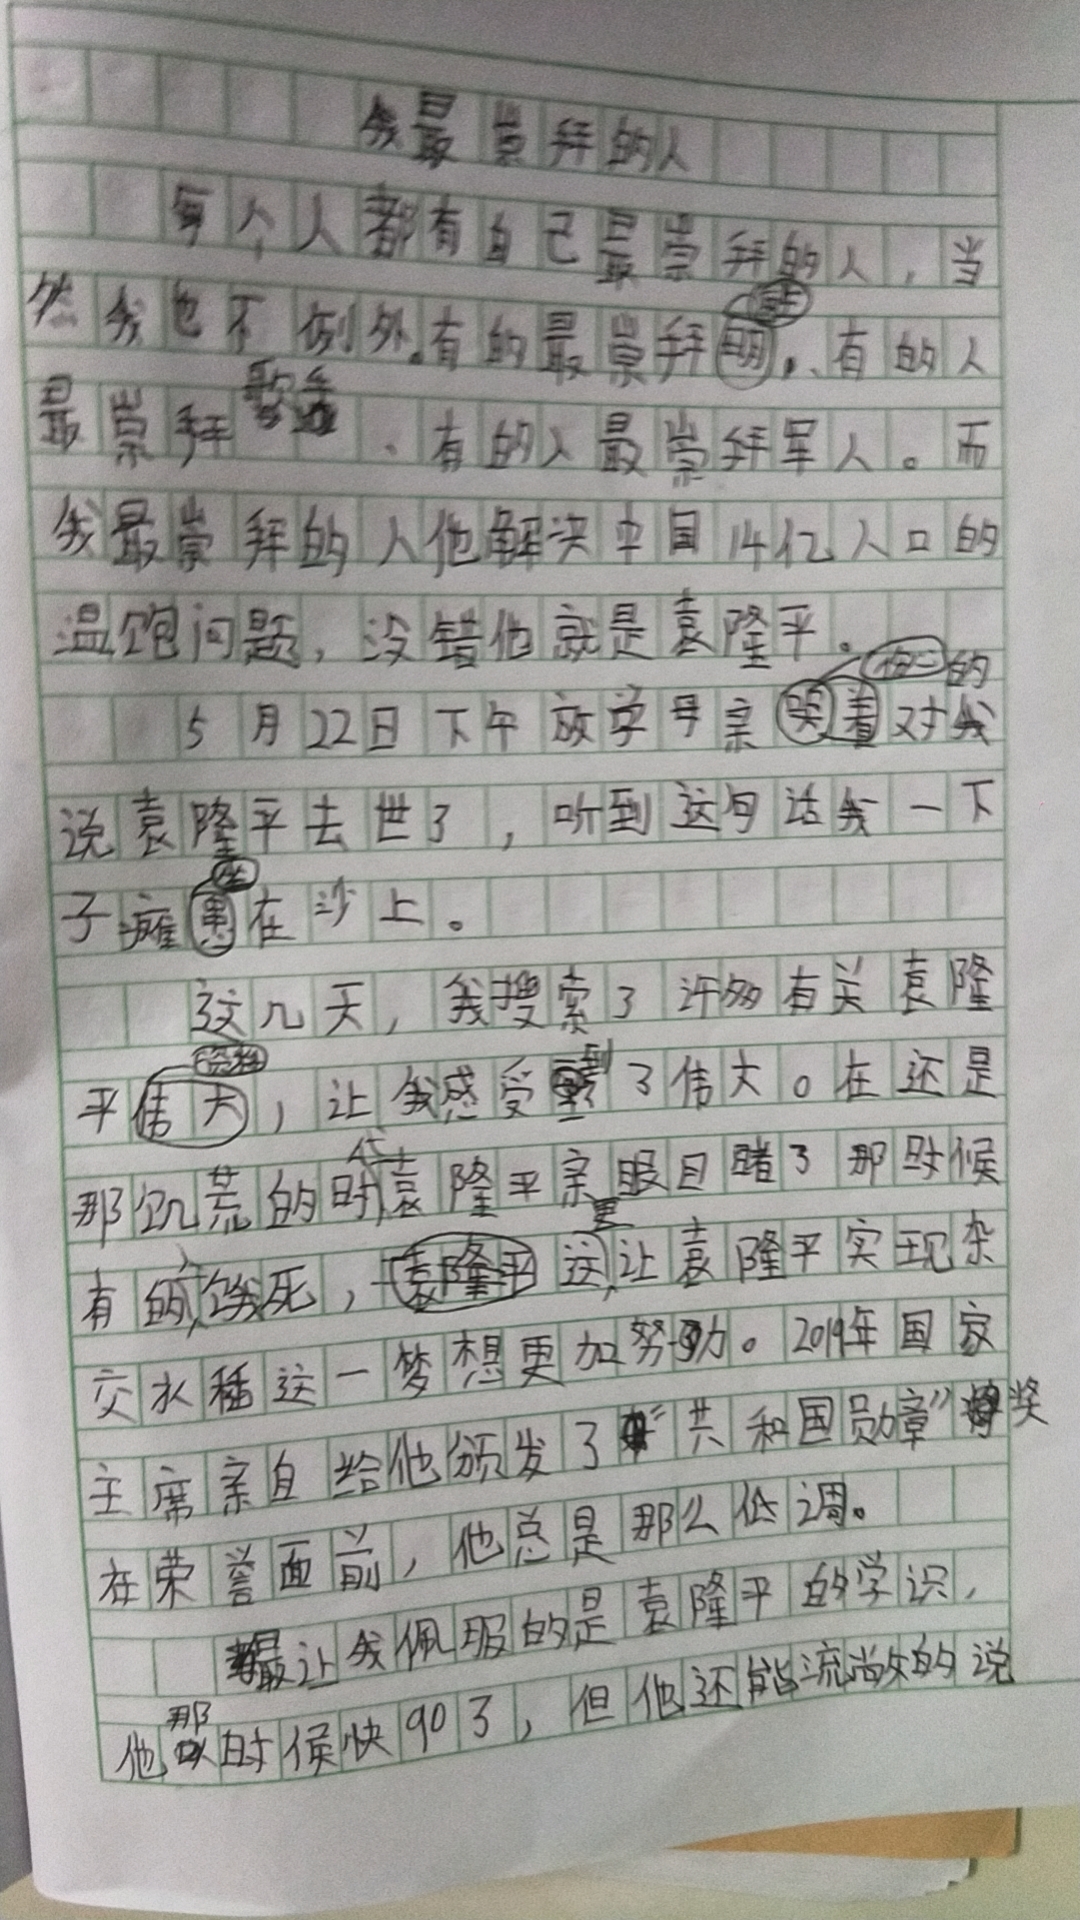 我最崇拜的人
每个人都有自己最崇拜的人，当
然我也不例外。有的最崇拜明星，、有的人
最崇拜歌手、有的人最崇拜军人。而
我最崇拜的人他解决中国14亿人口的
温饱问题，没错他就是袁隆平。
5月22日下午放学母亲哭着的对我
说袁隆平去世了，听到这句话我一下
子瘫坐在沙上。
这几天，我搜索了许多有关袁隆
平资料，让我感受到了伟大。在还是
那饥荒的时代袁隆平亲眼目睹了那时候
有的人饿死，这更让袁隆平实现杂
交水稻这一梦想更加努力。2019年国家
主席亲自给他颁发了“共和国勋章”奖
在荣誉面前，他总是那么低调。
最让我佩服的是袁隆平的学识，
他那时候快90了，但他还能流畅的说